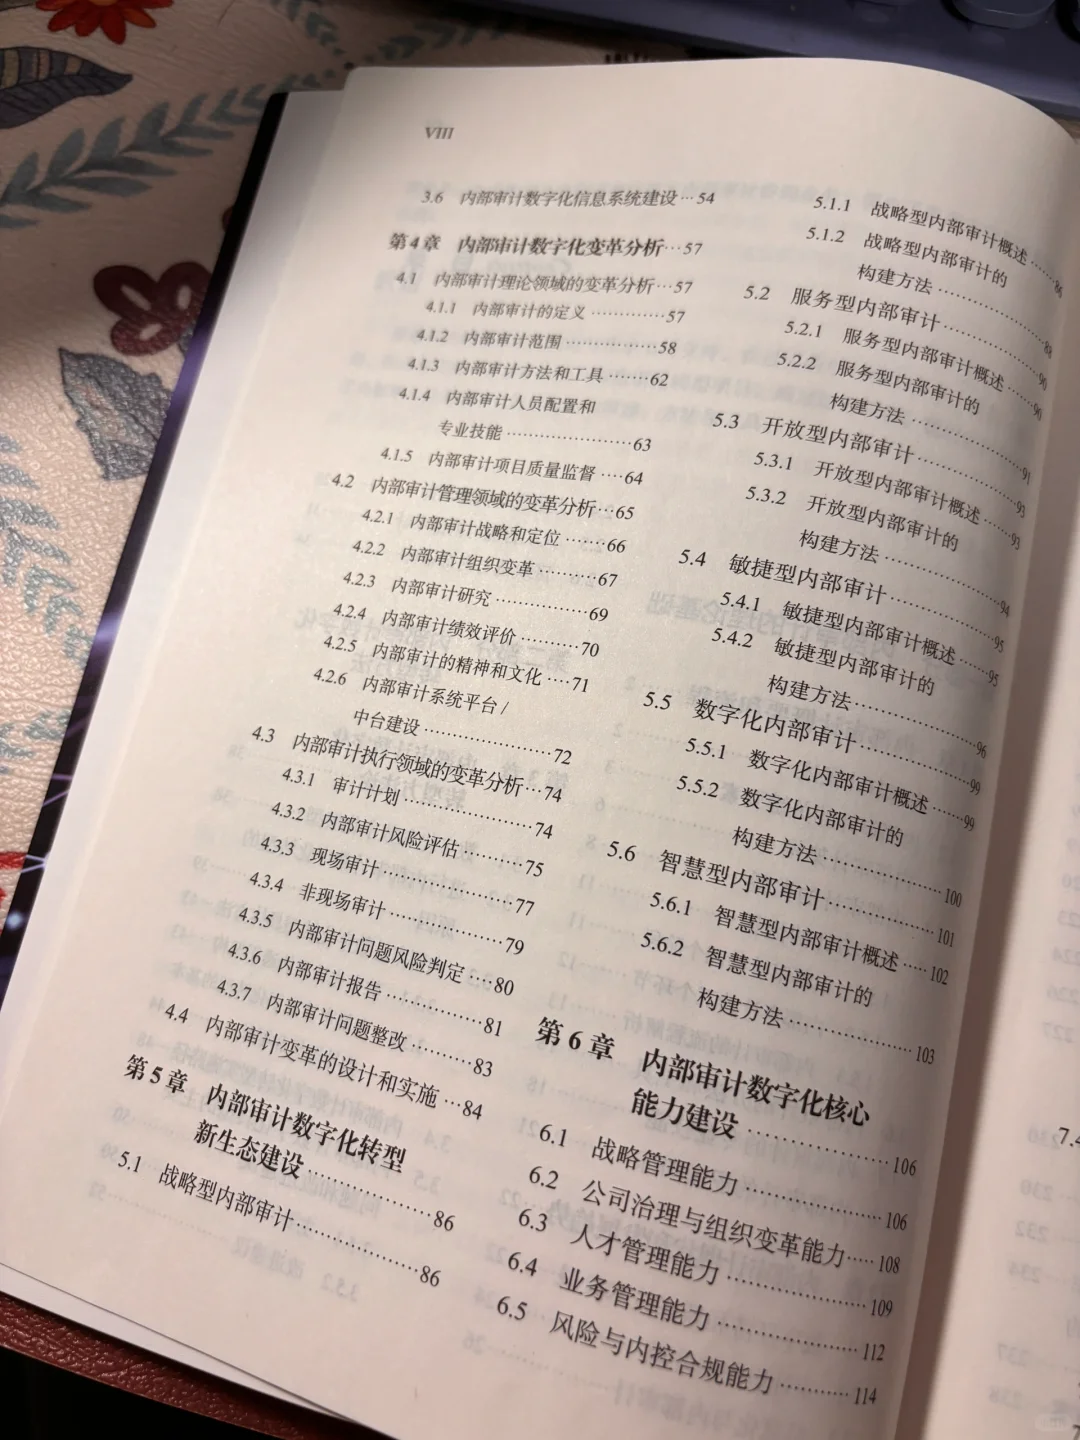 VIII
3.6 内部审计数字化信息系统建设…54
第4章 内部审计数字化变革分析…57
4.1 内部审计理论领域的变革分析…57
4.1.1 内部审计的定义…………57
4.1.2 内部审计范围……………58
4.1.3 内部审计方法和工具……62
4.1.4 内部审计人员配置和
专业技能…………………63
4.1.5 内部审计项目质量监督…64
4.2 内部审计管理领域的变革分析…65
4.2.1 内部审计战略和定位……66
4.2.2 内部审计组织变革………67
4.2.3 内部审计研究……………69
4.2.4 内部审计绩效评价………70
4.2.5 内部审计的精神和文化…71
4.2.6 内部审计系统平台/
中台建设…………………72
4.3 内部审计执行领域的变革分析…74
4.3.1 审计计划…………………74
4.3.2 内部审计风险评估………75
4.3.3 现场审计…………………77
4.3.4 非现场审计………………79
4.3.5 内部审计问题风险判定…80
4.3.6 内部审计报告……………81
4.3.7 内部审计问题整改………83
4.4 内部审计变革的设计和实施…84
第5章 内部审计数字化转型
新生态建设……………86
5.1 战略型内部审计………………86
5.1.1 战略型内部审计概述……86
5.1.2 战略型内部审计的
构建方法…………………88
5.2 服务型内部审计………………90
5.2.1 服务型内部审计概述……90
5.2.2 服务型内部审计的
构建方法…………………91
5.3 开放型内部审计………………93
5.3.1 开放型内部审计概述……93
5.3.2 开放型内部审计的
构建方法…………………94
5.4 敏捷型内部审计………………95
5.4.1 敏捷型内部审计概述……95
5.4.2 敏捷型内部审计的
构建方法…………………96
5.5 数字化内部审计………………99
5.5.1 数字化内部审计概述……99
5.5.2 数字化内部审计的
构建方法…………………100
5.6 智慧型内部审计………………101
5.6.1 智慧型内部审计概述……102
5.6.2 智慧型内部审计的
构建方法…………………103
第6章 内部审计数字化核心
能力建设………………106
6.1 战略管理能力…………………106
6.2 公司治理与组织变革能力……108
6.3 人才管理能力…………………109
6.4 业务管理能力…………………112
6.5 风险与内控合规能力…………114
7.4